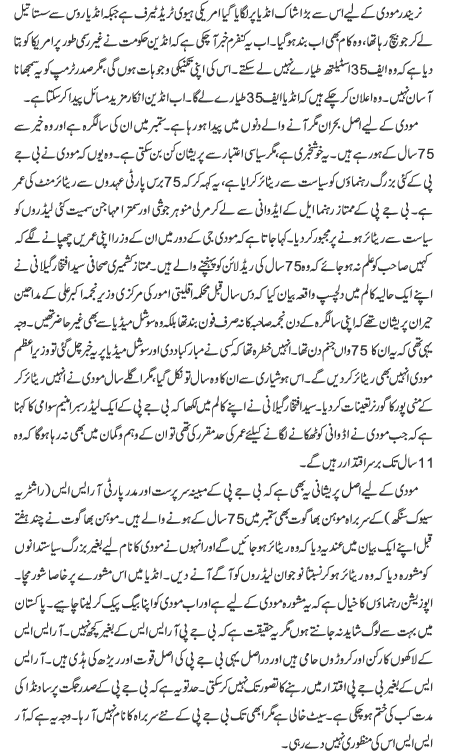 نریندر مودی کے لیے اس سے بڑا شاک انڈیا پر لگایا گیا امریکی ہیوی ٹریڈ ٹیرف ہے جبکہ انڈیا روس سے سستا تیل
لے کر جو بیچ رہا تھا، وہ کام بھی اب بند ہو گیا۔ اب یہ کنفرم خبر آ چکی ہے کہ انڈین حکومت نے غیر رسمی طور پر امریکا کو بتا
دیا ہے کہ وہ ایف 35 اسٹیلتھ طیارے نہیں لے سکتے۔ اس کی اپنی تکنیکی وجوہات ہوں گی، مگر صدر ٹرمپ کو یہ سمجھانا
آسان نہیں۔ وہ اعلان کر چکے ہیں کہ انڈیا ایف 35 طیارے لے گا۔ اب انڈین انکار مزید مسائل پیدا کر سکتا ہے۔
مودی کے لیے اصل بحران مگر آنے والے دنوں میں پیدا ہو رہا ہے۔ ستمبر میں ان کی سالگرہ ہے اور وہ خیر سے
75 سال کے ہو رہے ہیں۔ یہ خوشخبری ہے، مگر سیاسی اعتبار سے پریشان کن بن سکتی ہے۔ وہ یوں کہ مودی نے بی جے
پی کے کئی بزرگ رہنماؤں کو سیاست سے ریٹائر کرایا ہے، یہ کہہ کر کہ 75 برس پارٹی عہدوں سے ریٹائرمنٹ کی عمر
ہے۔ بی جے پی کے ممتاز رہنما ایل کے ایڈوانی سے لے کر مرلی منوہر جوشی اور سمترا مہاجن سمیت کئی لیڈروں کو
سیاست سے ریٹائر ہونے پر مجبور کر دیا۔ کہا جاتا ہے کہ مودی جی کے دور میں ان کے وزرا اپنی عمریں چھپانے لگے کہ
کہیں صاحب کو علم نہ ہو جائے کہ وہ 75 سال کی ریڈ لائن کو پہنچنے والے ہیں۔ ممتاز کشمیری صحافی سید افتخار گیلانی نے
اپنے ایک حالیہ کالم میں دلچسپ واقعہ بیان کیا کہ دس سال قبل محکمہ اقلیتی امور کی مرکزی وزیر نجمہ اکبر علی کے مداحین
حیران پریشان تھے کہ اپنی سالگرہ کے دن نجمہ صاحبہ کا نہ صرف فون بند تھا بلکہ وہ سوشل میڈیا سے بھی غیر حاضر تھیں۔ وجہ
یہی تھی کہ یہ ان کا 75 واں جنم دن تھا۔ انہیں خطرہ تھا کہ کسی نے مبارکباد دی اور سوشل میڈیا پر یہ خبر چل گئی تو وزیراعظم
مودی انہیں بھی ریٹائر کر دیں گے۔ اس ہوشیاری سے ان کا وہ سال تو نکل گیا، مگر اگلے سال مودی نے انہیں ریٹائر کر
کے منی پور کا گورنر تعینات کر دیا۔ سید افتخار گیلانی نے اپنے کالم میں لکھا کہ بی جے پی کے ایک لیڈر سبرامنیم سوامی کا کہنا
ہے کہ جب مودی نے اڈوانی کو ٹھکانے لگانے کیلئے عمر کی حد مقرر کی تھی تو ان کے وہم و گمان میں بھی نہ رہا ہوگا کہ وہ
11 سال تک برسراقتدار رہیں گے۔
مودی کے لیے اصل پریشانی یہ بھی ہے کہ بی جے پی کے مبینہ سرپرست اور مدر پارٹی آر ایس ایس (راشٹریہ
سیوک سنگھ) کے سربراہ موہن بھاگوت بھی ستمبر میں 75 سال کے ہونے والے ہیں۔ موہن بھاگوت نے چند ہفتے
قبل اپنے ایک بیان میں عندیہ دیا کہ وہ ریٹائر ہو جائیں گے اور انہوں نے مودی کا نام لیے بغیر بزرگ سیاستدانوں کو
مشورہ دیا کہ وہ ریٹائر ہو کر نسبتاً نوجوان لیڈروں کو آگے آنے دیں۔ انڈیا میں اس مشورے پر خاصا شور مچا۔
اپوزیشن رہنماؤں کا خیال ہے کہ یہ مشورہ مودی کے لیے ہے اور اب مودی کو اپنا بیگ پیک کر لینا چاہیے۔ پاکستان
میں بہت سے لوگ شاید نہ جانتے ہوں مگر یہ حقیقت ہے کہ بی جے پی آر ایس ایس کے بغیر کچھ نہیں۔ آر ایس ایس
کے لاکھوں کارکن اور کروڑوں حامی ہیں اور دراصل یہی بی جے پی کی اصل قوت اور ریڑھ کی ہڈی ہیں۔ آر ایس
ایس کے بغیر بی جے پی اقتدار میں رہنے کا تصور تک نہیں کر سکتی۔ حد تو یہ ہے کہ بی جے پی کے صدر جگت پرساد نڈا کی
مدت کب کی ختم ہو چکی ہے۔ سیٹ خالی ہے مگر ابھی تک بی جے پی کے نئے سربراہ کا نام نہیں آ رہا۔ وجہ یہ ہے کہ آر
ایس ایس اس کی منظوری نہیں دے رہی۔